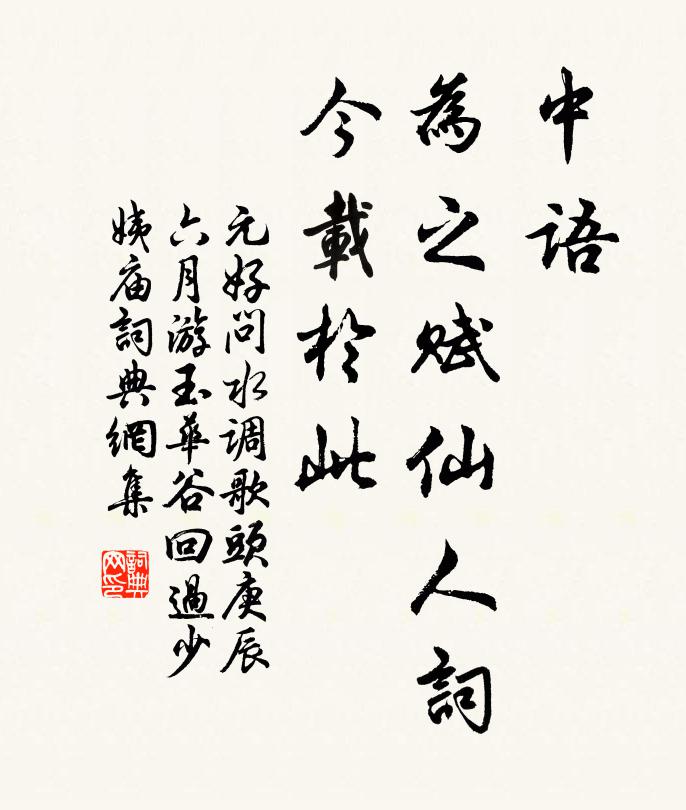 中语
為之赋仙人詞
今載於此
元好问水调歌頭庚辰
六月游玉華谷回過少
姨庙詞典網集
詞典網印